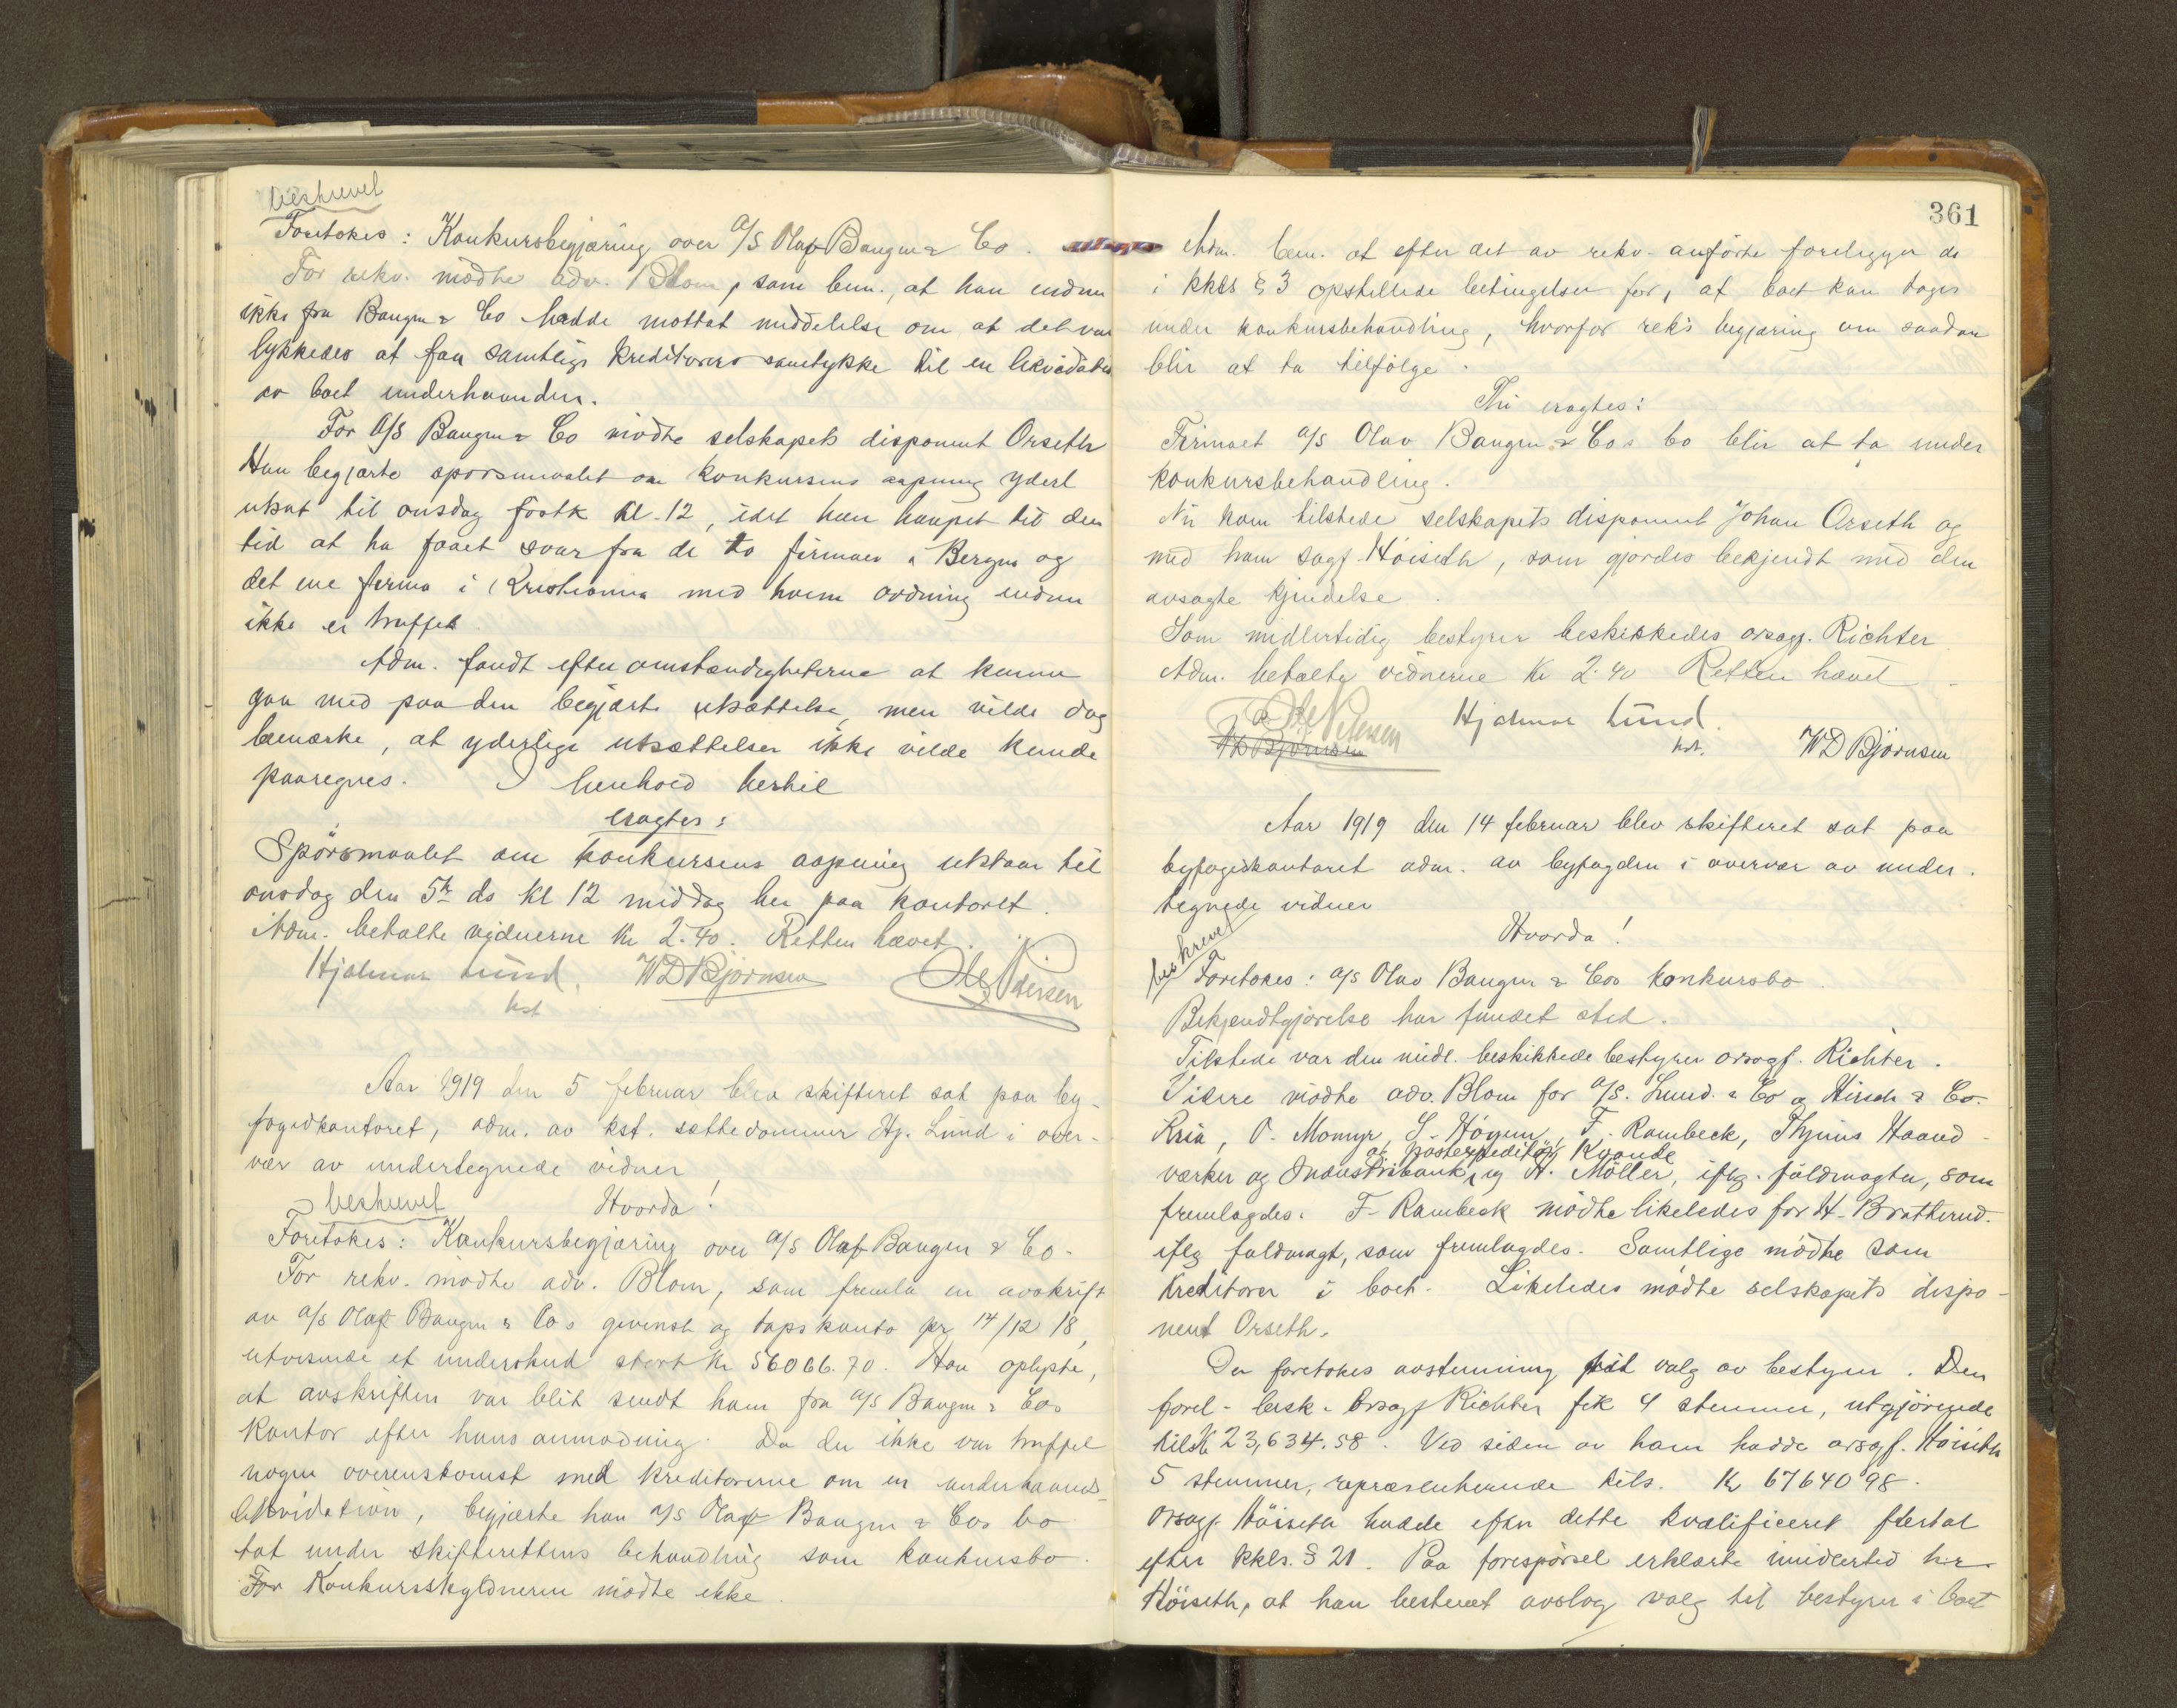 beskrevet
Foretokes: Konkursbegjæring over A/S Olaf Baugen & Co.
For rekv. mødte adv. Blom, som bem., at han endnu
ikke fra Baugen & Co hadde mottat meddelelse om at det var
lykkedes at faa samtlige kreditorers samtykke til en likvidation
av boet underhaanden.
For A/S Baugen & Co mødte selskapets disponent Orseth
Han begjærte spørsmaalet om konkursens aapning yderl
utsat til onsdag førstk kl. 12, idet han haapet til den
tid at ha faaet svar fra de to firmaer i Bergen og
det ene firma i Kristiania med hvem ordning endnu
ikke er truffet.
Adm. fandt efter omstændigheterne at kunne
gaa med paa den begjærte utsættelse, men vilde dog
bemærke, at yderlige utsættelser ikke vilde kunde
paaregnes. I henhold hertil
eragtes:
Spørsmaalet om konkursens aapning utstaar til
onsdag den 5te ds kl 12 middag her paa kontoret.
Adm. betalte vidnerne kr 2.40. Retten hævet.
Hjalmar Lund. WD Bjørnsen Ole Petersen
kst
Aar 1919 den 5 februar blev skifteret sat paa by-
fogedkontoret, adm. av kst. sættedommer Hj. Lund i over-
vær av undertegnede vidner
beskrevet Hvorda!
Foretokes: Konkursbegjæring over A/S Olaf Baugen & Co.
For rekv. mødte adv. Blom, som fremla en avskrift
av A/S Olaf Baugen & Co s gevinst og tapskonto pr 14/12 18,
utvisende et underskud stort kr 56066.70. Han oplyste,
at avskriften var blit sendt ham fra A/S Baugen & Cos
kontor efter hans anmodning. Da der ikke var truffet
nogen overenskomst med kreditorerne om en underhaands-
likvidation, begjærte han A/S Olaf Baugen & Cos bo
tat under skifterettens behandling som konkursbo.
For Konkursskyldneren mødte ikke.
361
Adm. bem. at efter det av rekv. anførte foreligger de
i kkls § 3 opstillede betingelser for, at boet kan tages
under konkursbehandling, hvorfor rek's begjæring om saadan
blir at ta tilfølge.
Thi eragtes:
Firmaet A/S Olav Baugen & Co s bo blir at ta under
konkursbehandling.
Nu kom tilstede selskapets disponent Johan Orseth og
med ham sagf. Höiseth, som gjordes bekjendt med den
avsagte kjendelse.
Som midlertidig bestyrer beskikkedes orsagf. Richter
Adm. betalte vidnerne kr 2.40 Retten hævet
Ole Petersen Hjalmar Lund.
WD Bjørnsen kst. WD Bjørnsen
Aar 1919 den 14 februar blev skifteret sat paa
byfogedkontoret adm. av byfogden i overvær av under-
tegnede vidner
Hvorda!
beskrevet
Foretokes: A/S Olav Baugen & Cos konkursbo
Bekjendtgjørelse har fundet sted.
Tilstede var den midl. beskikkede bestyrer orsagf. Richter.
Videre mødte adv. Blom for A/S. Lund & Co og Hirsch & Co.
Kria, O. Momyr, S. Høyem, F. Rambeck, Thjems Haand-
at postexpeditör Kvande
værker og Industribank, og A. Möller, iflg. fuldmagter, som
fremlagdes. F. Rambeck mødte likeledes for H. Bratterud.
iflg fuldmagt, som fremlagdes. Samtlige mødte som
kreditorer i boet. Likeledes mødte selskapets dispo-
nent Orseth.
Der foretokes avstemning til valg av bestyrer. Den
forel. besk. orsagf Richter fik 4 stemmer, utgjørende
tils kr 23,634.58. Ved siden av ham hadde orsagf. Höiseth
5 stemmer, repræsenterende tils. kr 67640 98.
Orsagf. Höiseth hadde efter dette kvalificeret flertal
efter kkls. § 21. Paa forespørsel erklærte imidlertid hr.
Höiseth, at han bestemt avslog valg til bestyrer i boet